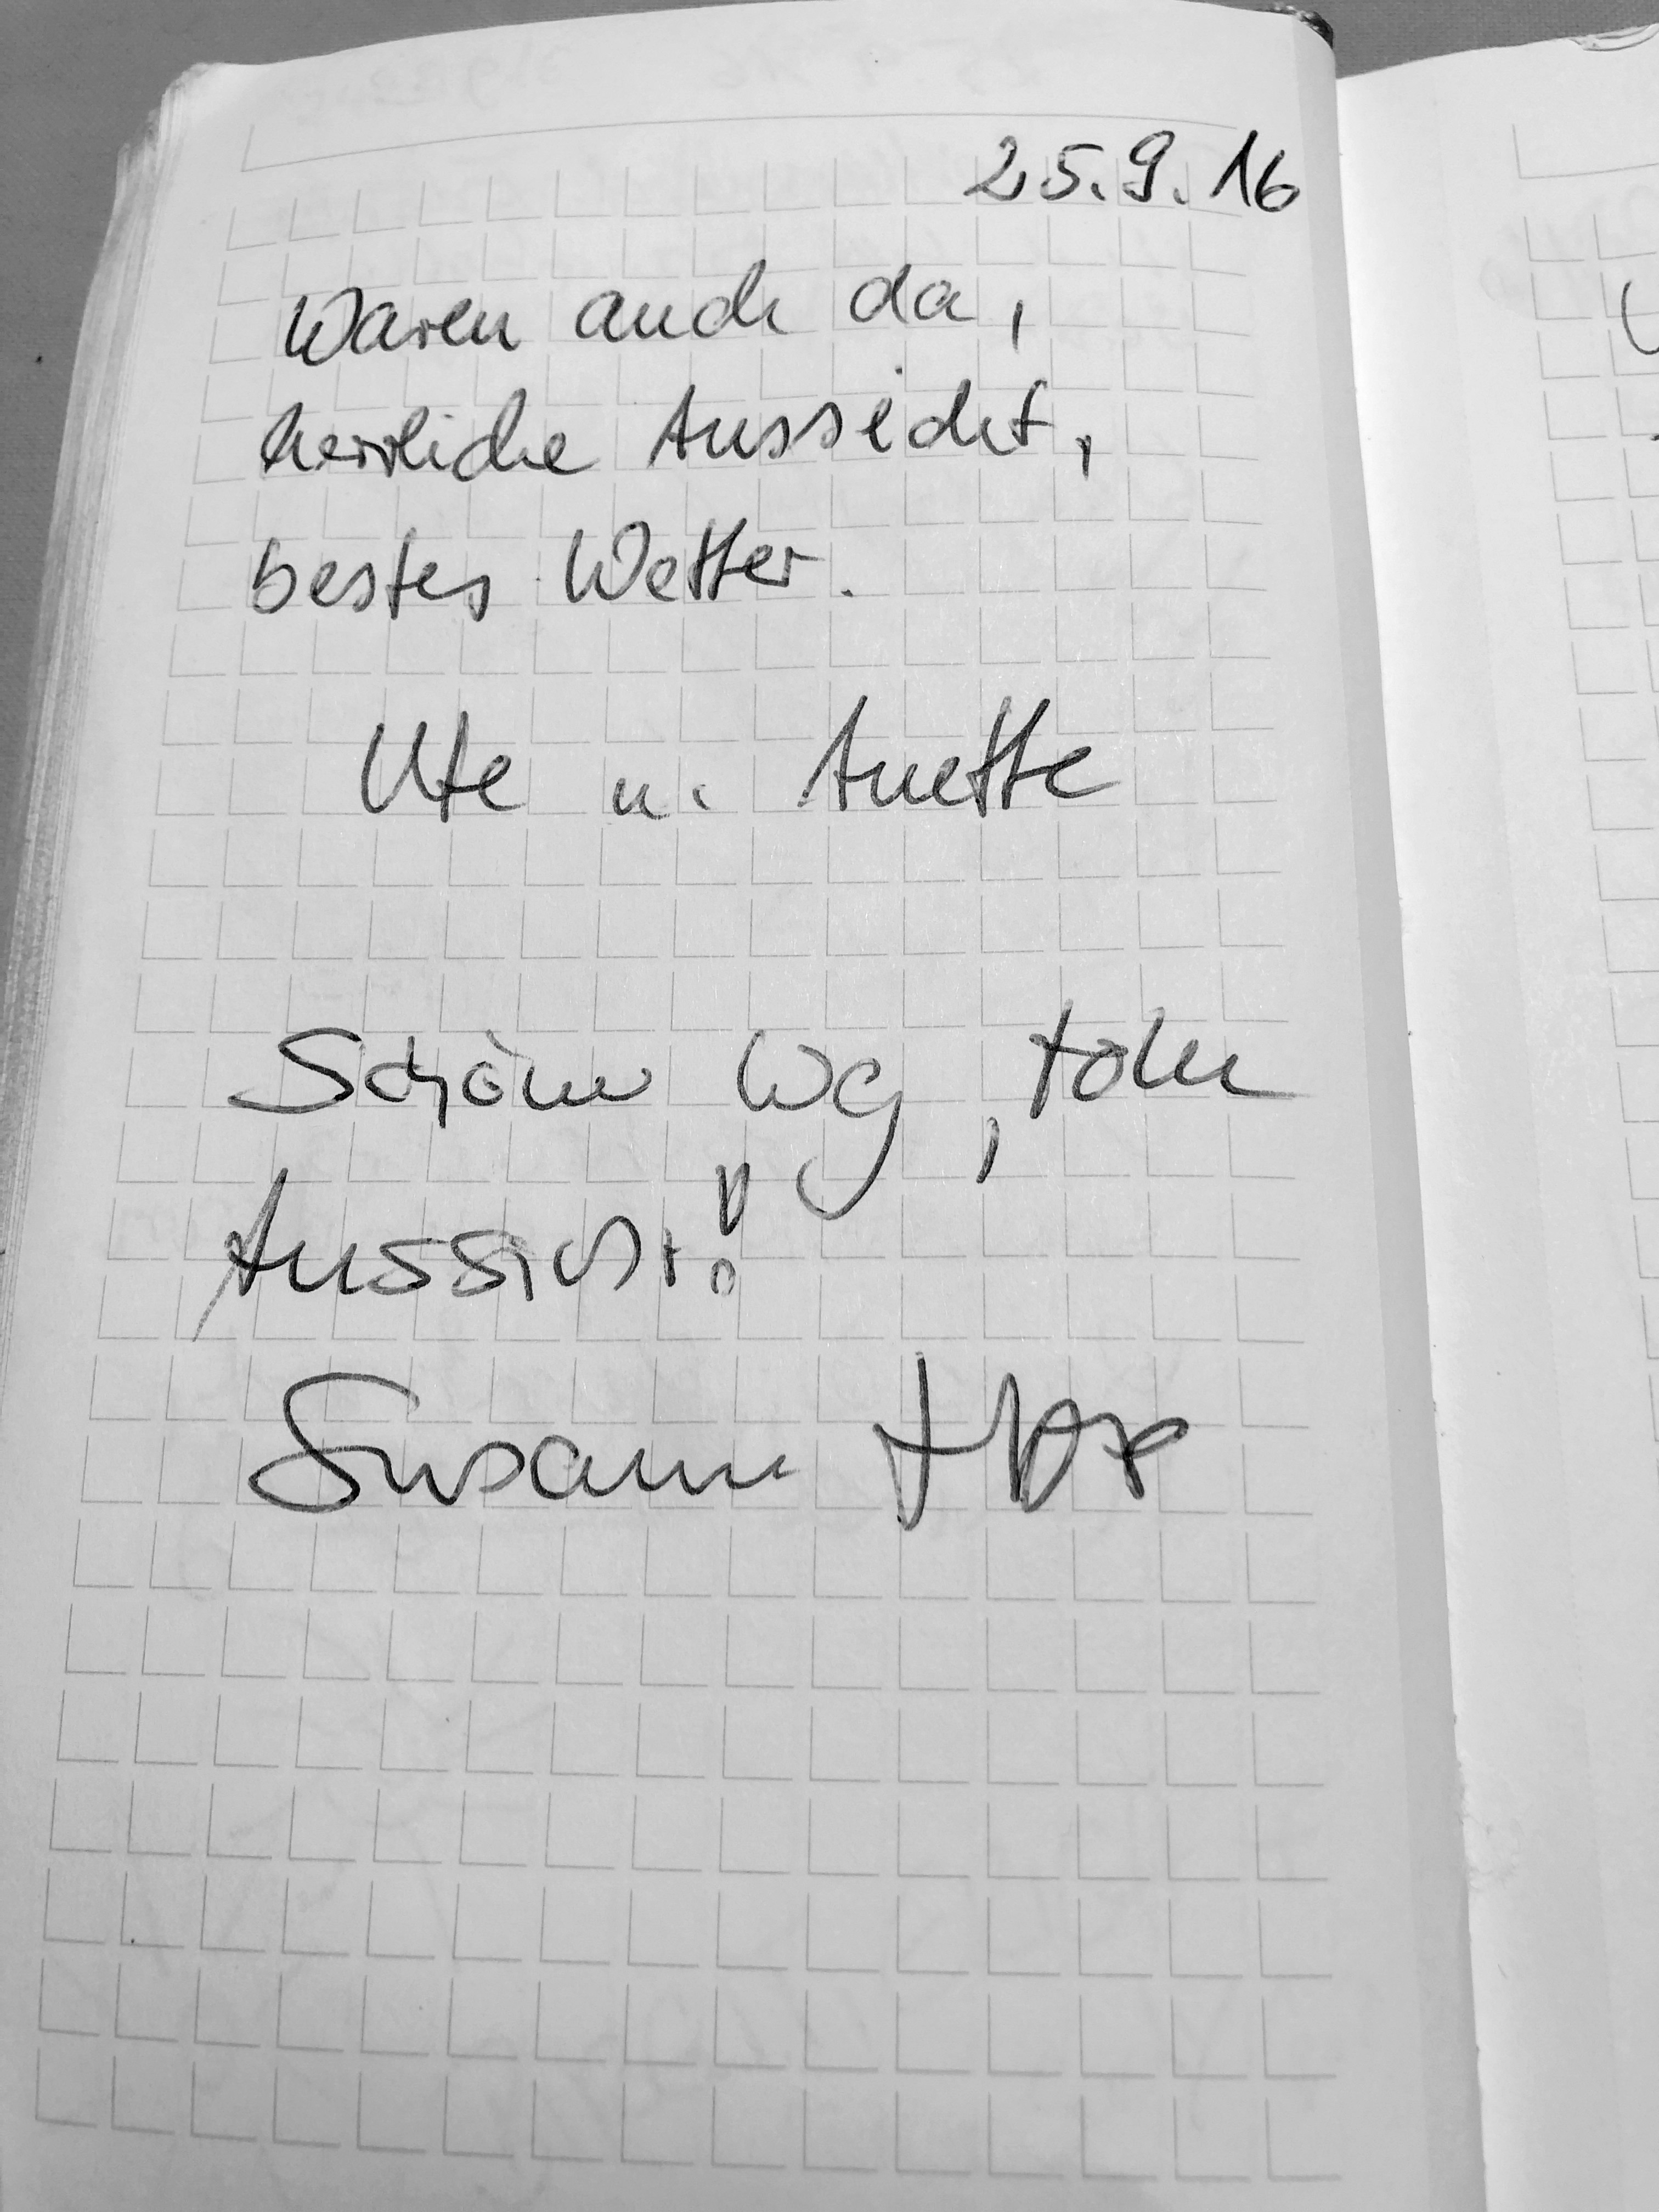 25.9.16
Waren auch da,
herrliche Aussicht,
bestes Wetter.
Ute u. Anette
Schöner Weg, tolle
Aussicht!
Susann